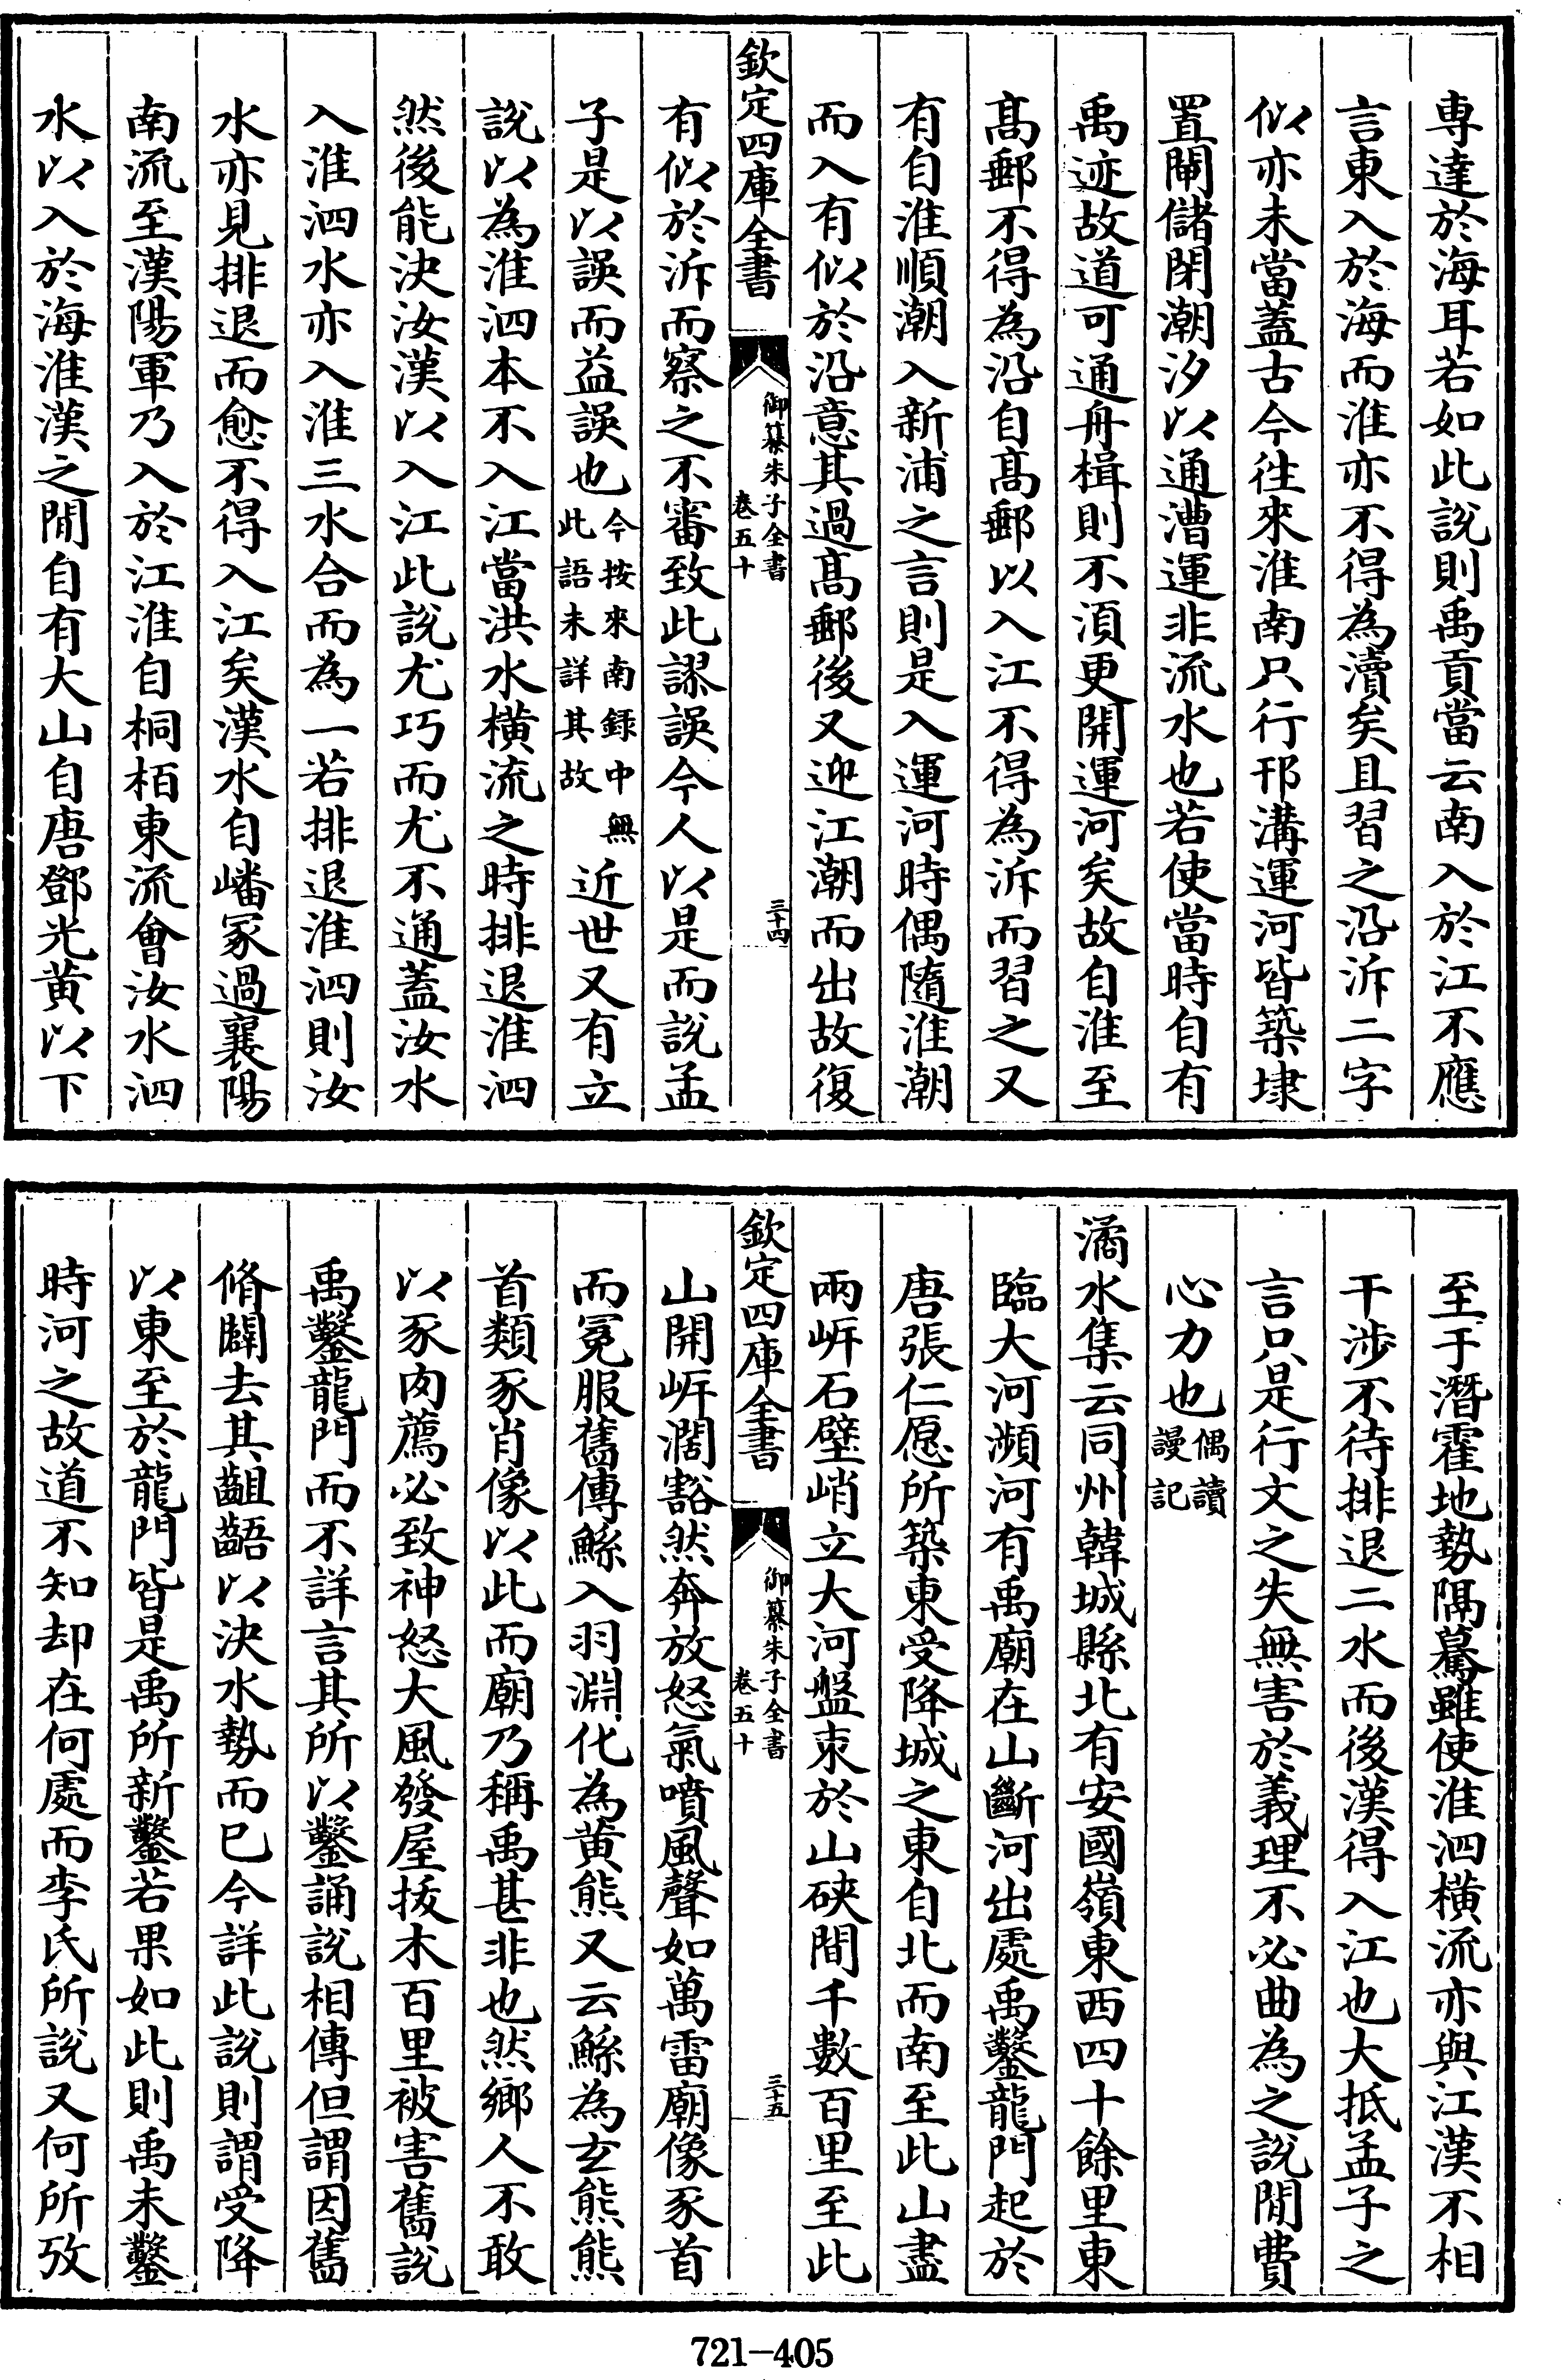 專達於海耳若如此説則禹貢當云南入於江不應
言東入於海而淮亦不得為瀆矣且習之沿泝二字
似亦未當蓋古今往來淮南只行邗溝運河皆築埭
置閘儲閉潮汐以通漕運非流水也若使當時自有
禹迹故道可通舟楫則不須更開運河矣故自淮至
髙郵不得為沿自髙郵以入江不得為泝而習之又
有自淮順潮入新浦之言則是入運河時偶隨淮潮
而入有似於沿意其過髙郵後又迎江潮而出故復
欽定四庫全書
御纂朱子全書
卷五十
三十四
有似於泝而察之不審致此謬誤今人以是而説孟
子是以誤而益誤也今按來南録中無此語未詳其故近世又有立
説以為淮泗本不入江當洪水橫流之時排退淮泗
然後能決汝漢以入江此説尤巧而尤不通蓋汝水
入淮泗水亦入淮三水合而為一若排退淮泗則汝
水亦見排退而愈不得入江矣漢水自嶓冢過襄陽
南流至漢陽軍乃入於江淮自桐栢東流會汝水泗
水以入於海淮漢之閒自有大山自唐鄧光黄以下
至于潛霍地勢隔驀雖使淮泗横流亦與江漢不相
干涉不待排退二水而後漢得入江也大抵孟子之
言只是行文之失無害於義理不必曲為之説閒費
心力也偶讀謾記
潏水集云同州韓城縣北有安國嶺東西四十餘里東
臨大河瀕河有禹廟在山斷河出處禹鑿龍門起於
唐張仁愿所築東受降城之東自北而南至此山盡
兩岍石壁峭立大河盤束於山硤間千數百里至此
欽定四庫全書
御纂朱子全書
卷五十
三十五
山開岍濶豁然奔放怒氣噴風聲如萬雷廟像豕首
而冕服舊傳鯀入羽淵化為黄熊又云鯀為玄熊熊
首類豕肖像以此而廟乃稱禹甚非也然鄉人不敢
以豕肉薦必致神怒大風發屋拔木百里被害舊説
禹鑿龍門而不詳言其所以鑿誦説相傳但謂因舊
脩闢去其齟齬以決水勢而已今詳此説則謂受降
以東至於龍門皆是禹所新鑿若果如此則禹未鑿
時河之故道不知却在何處而李氏所説又何所攷
721-405